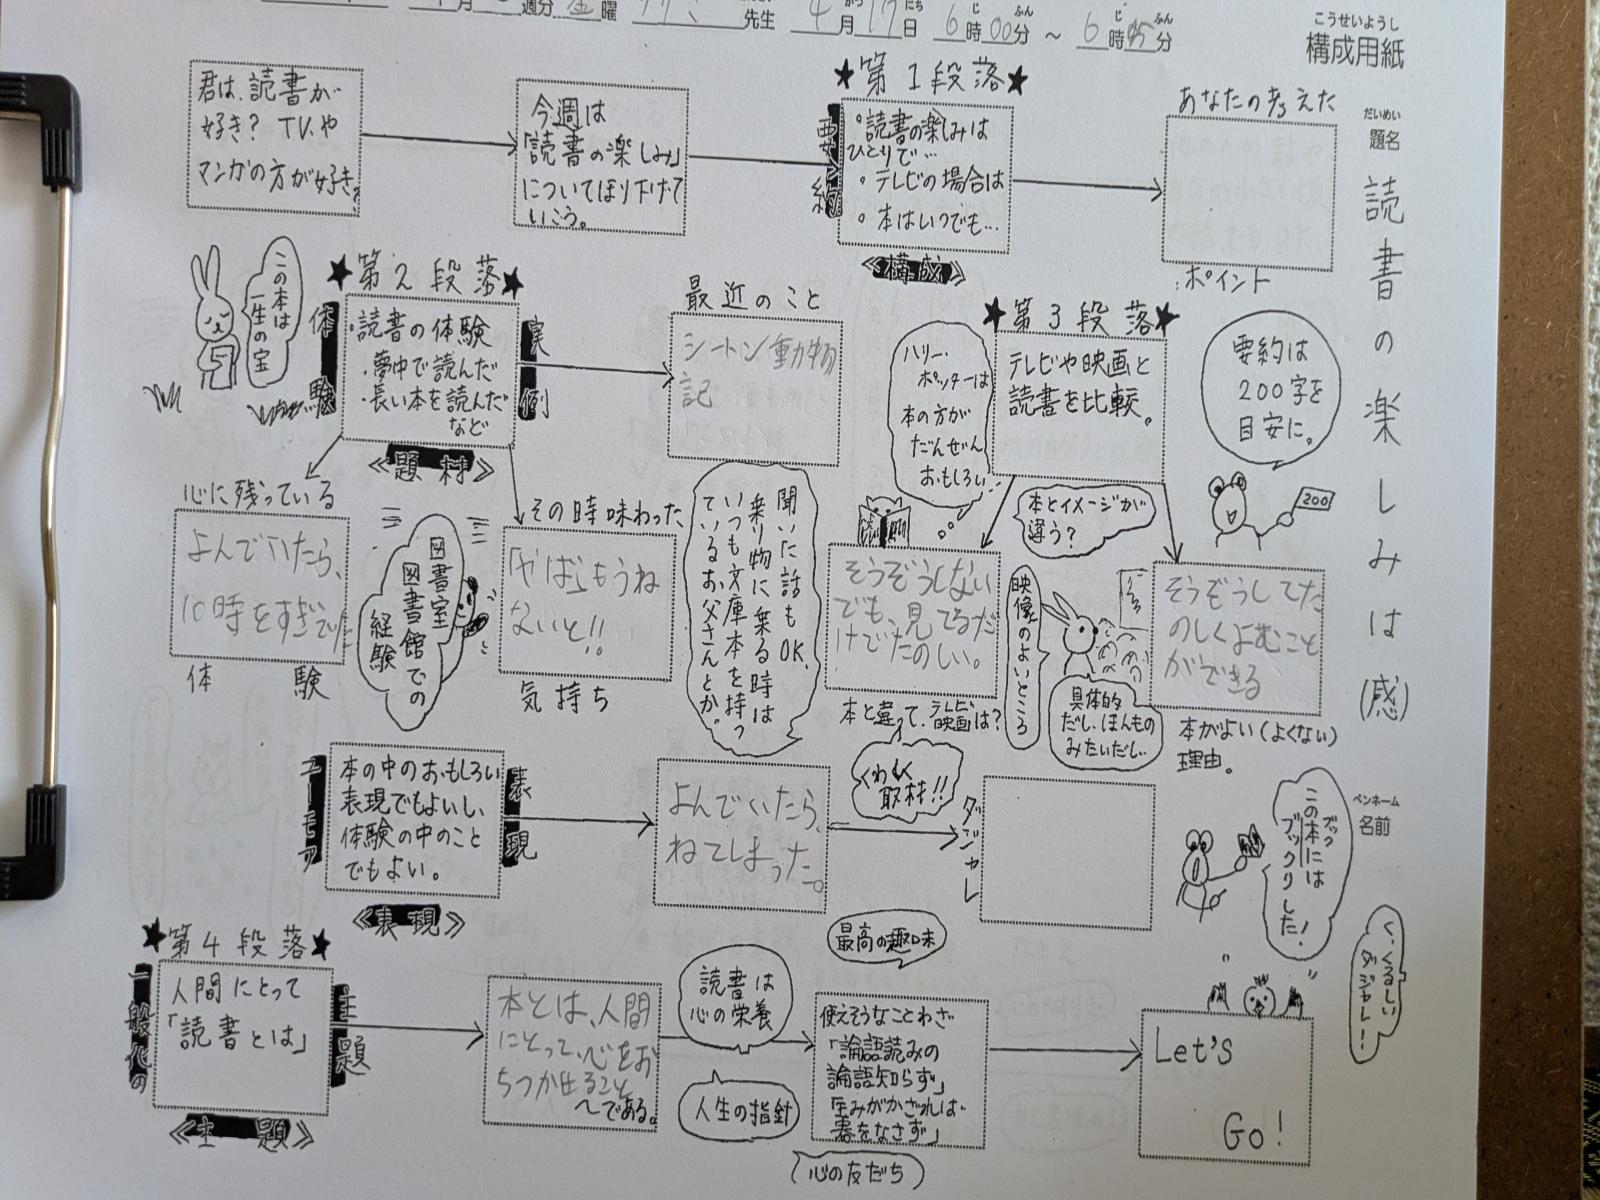 月
週分
金
曜
先生
4
月
17
日
6
時
00
分
～
6
時
05
分
こうせいようし
構成用紙
だいめい
題名
読書の楽しみは(感)
君は、読書が
好き? TV.や
マンガの方が好き?
今週は
「読書の楽しみ」
についてほり下げて
いこう。
★第1段落★
要約
・読書の楽しみは
ひとりで…
・テレビの場合は
・本はいつでも…
≪構成≫
あなたの考えた
ポイント
要約は
200字を
目安に。
200
この本は
一生の宝
★第2段落★
体験
・読書の体験
・夢中で読んだ
・長い本を読んだ
など
実例
≪題材≫
最近のこと
シートン動物
記
心に残っている
よんでいたら、
10時をすぎてい
体験
図書室
図書館での
経験
その時味わった
「やば」もうね
ないと!!
気持ち
聞いた話もOK。
乗り物に乗る時は
いつも文庫本を持っ
ているお父さんとか。
★第3段落★
テレビや映画と
読書を比較。
ハリー・
ポッターは
本の方が
だんぜん
おもしろい…
本とイメージが
違う?
そうぞうしない
でも、見てるだ
けでたのしい。
本と違って、テレビ
映画は?
映像のよいところ
具体的
だし、ほんもの
みたいだし…
そうぞうしてた
のしくよむこと
ができる
本がよい(よくない)
理由。
ユーモア
本の中のおもしろい
表現でもよいし、
体験の中のこと
でもよい。
表現
≪表現≫
よんでいたら、
ねてしまった。
くわしく
取材!!
ダジャレ
この本には
ブックリした!
ブック
ペンネーム
名前
く、くるしい
ダジャレ…!!
★第4段落★
一般化の
人間にとって
「読書とは」
主題
≪主題≫
本とは、人間
にとって、心をお
ちつかせること
～である。
読書は
心の栄養
人生の指針
最高の趣味
使えそうなことわざ
「論語読みの
論語知らず」
「玉みがかざれば
器をなさず」
心の友だち
Let's
Go!